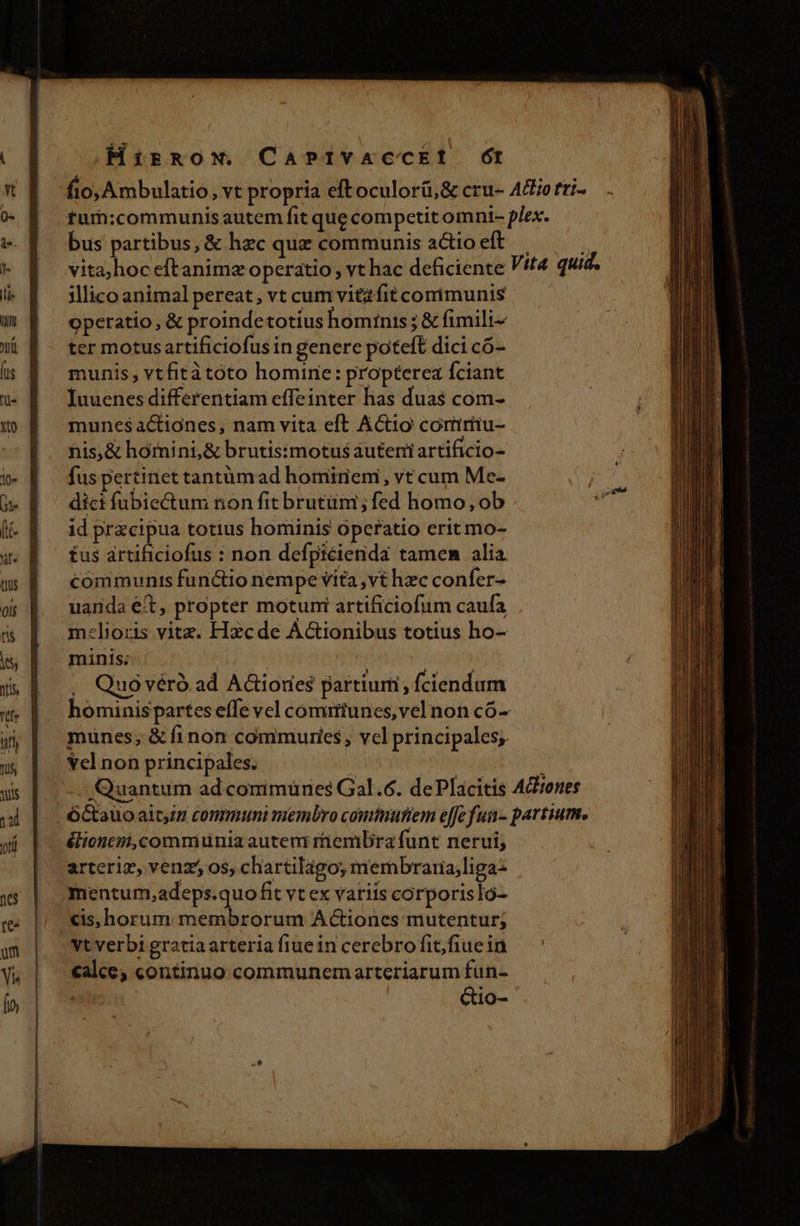 HIERON. CAPIVACCEI 61
ſio, Ambulatio, vt propria eſt oculorũ, & cru- Actio tri-
rum: communis autem fit quę competit omni- plex.
bus partibus, & hæc quæ communis actio eſt
vita, hoc eſt animæ operatio, vt hac deficiente Vita quid.
illico animal pereat, vt cum vita ſit communis
operatio, & proinde totius hominis; & ſimili-
ter motus artificioſus in genere poteſt dici cõ-
munis, vt fit à toto homine: propterea ſciant
Iuuenes differentiam eſſe inter has duas com-
munes actiones, nam vita eſt Actio commu-
nis, & homini, & brutis: motus autem artificio-
ſus pertinet tantùm ad hominem, vt cum Me-
dici ſubiectum non ſit brutum; ſed homo, ob
id præcipua totius hominis operatio erit mo-
tus artificioſus: non deſpicienda tamen alia
communis functio nempe vita, vt hæc conſer-
uanda eſt, propter motum artificioſum cauſa
melioris vitæ. Hæc de Actionibus totius ho-
minis.
Quo vérò ad Actiones partium, ſciendum
hominis partes eſſe vel communes, vel non cõ-
munes, & ſi non communes, vel principales,
vel non principales.
Quantum ad communes Gal. 6. de Placitis Actiones
octauo ait, in communi membro communem eſſe fun- partium.
ctionem, communia autem membra ſunt nerui,
arteriæ, venæ, os, chartilago, membrana, liga-
mentum, adeps. quo fit vt ex variis corporis lo-
cis, horum membrorum Actiones mutentur,
vt verbi gratia arteria ſiue in cerebro ſit, ſiue in
calce, continuo communem arteriarum fun-
ctio-